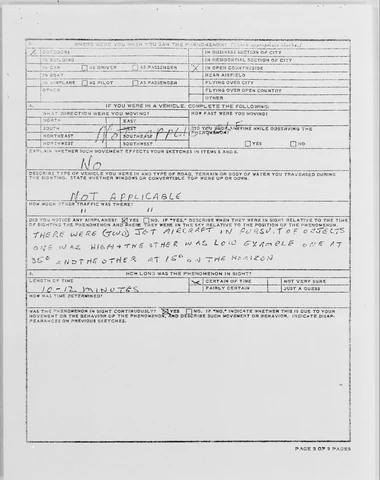 WHERE WERE YOU WHEN YOU SAW THE PHENOMENON?
X OUTDOORS IN BUSINESS SECTION OF CITY
IN BUILDING IN RESIDENTIAL SECTION OF CITY
IN CAR AS DRIVER AS PASSENGER X IN OPEN COUNTRYSIDE
IN BOAT NEAR AIRFIELD
IN AIRPLANE AS PILOT AS PASSENGER FLYING OVER CITY
OTHER FLYING OVER OPEN COUNTRY
OTHER
IF YOU WERE IN A VEHICLE, COMPLETE THE FOLLOWING:
WHAT DIRECTION WERE YOU MOVING? HOW FAST WERE YOU MOVING?
NORTH EAST
SOUTH WEST
NOT APPLICABLE
NORTHEAST SOUTHEAST
NORTHWEST SOUTHWEST YES NO
EXPLAIN WHETHER SUCH MOVEMENT EFFECTS YOUR SKETCHES IN ITEMS 5 AND 6.
NO
DESCRIBE TYPE OF VEHICLE YOU WERE IN AND TYPE OF ROAD, TERRAIN OR BODY OF WATER YOU TRAVERSED DURING
THE SIGHTING. STATE WHETHER WINDOWS OR CONVERTIBLE TOP WERE UP OR DOWN.
NOT APPLICABLE
HOW MUCH OTHER TRAFFIC WAS THERE?
" "
DID YOU NOTICE ANY AIRPLANES? YES NO. IF "YES," DESCRIBE WHEN THEY WERE IN SIGHT RELATIVE TO THE TIME
OF SIGHTING THE PHENOMENON AND WHERE THEY WERE IN THE SKY RELATIVE TO THE POSITION OF THE PHENOMENON.
THERE WERE (TWO) JET AIRCRAFT IN PURSUIT OF OBJECTS
ONE WAS HIGH + THE OTHER WAS LOW EXAMPLE ONE AT
35° AND THE OTHER AT 15° ON THE HORIZON
HOW LONG WAS THE PHENOMENON IN SIGHT?
LENGTH OF TIME X CERTAIN OF TIME NOT VERY SURE
10-12 MINUTES FAIRLY CERTAIN JUST A GUESS
HOW WAS TIME DETERMINED?
WAS THE PHENOMENON IN SIGHT CONTINUOUSLY? YES NO. IF "NO," INDICATE WHETHER THIS IS DUE TO YOUR
MOVEMENT OR THE BEHAVIOR OF THE PHENOMENON, AND DESCRIBE SUCH MOVEMENT OR BEHAVIOR. INDICATE DISAP-
PEARANCES ON PREVIOUS SKETCHES.
PAGE 3 OF 9 PAGES